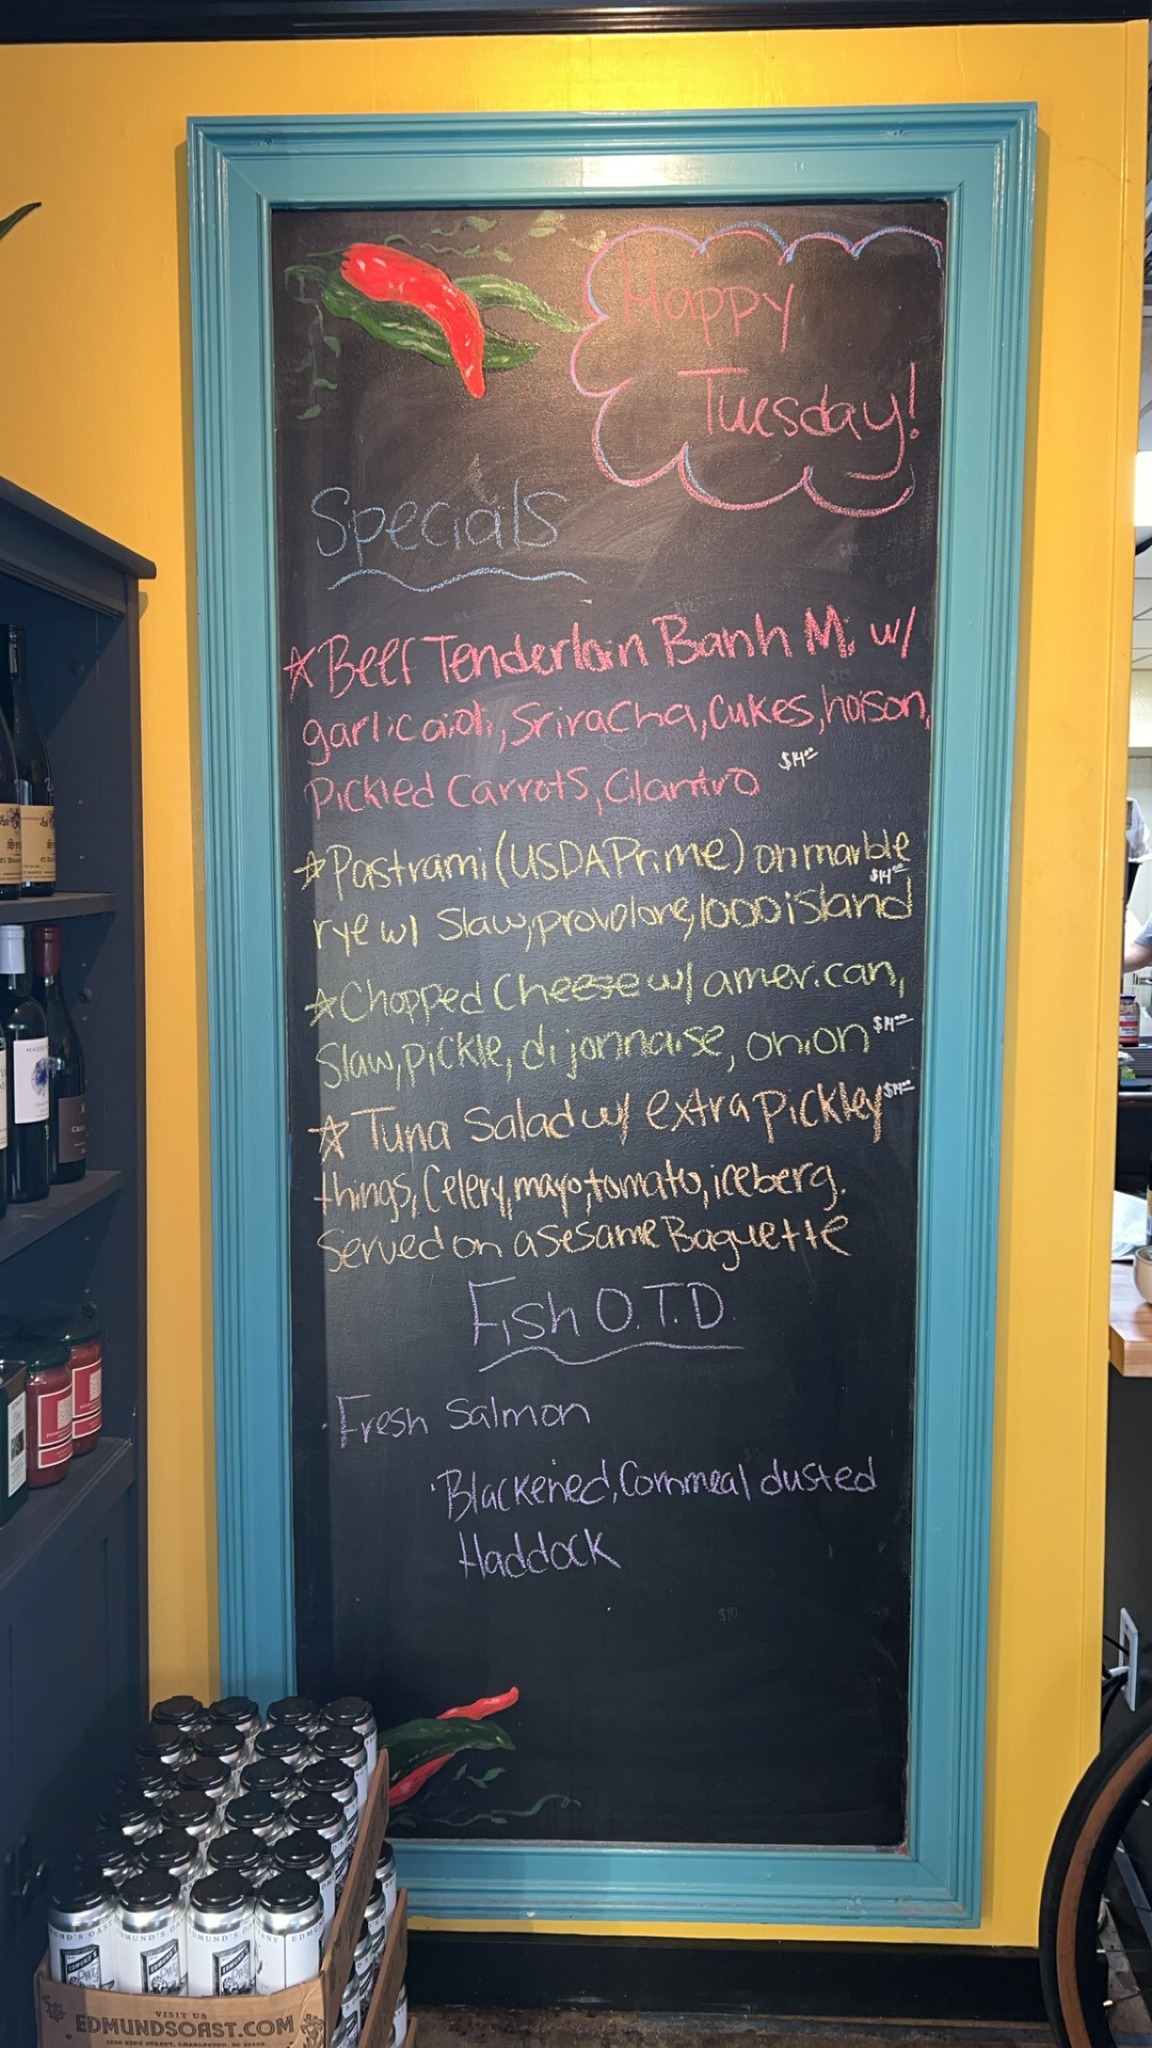 Happy
Tuesday!
Specials
Beef Tenderloin Banh Mi w/
garlic aioli, Sriracha, Cukes, hoison,
Pickled Carrots, Cilantro $14.00
Pastrami (USDA Prime) on marble
$14.00
rye w/ Slaw, provolone, 1000 island
Chopped Cheese w/ american,
Slaw, pickle, dijonnaise, onion $14.00
Tuna Salad w/ extra pickley $14.00
things, Celery, mayo, tomato, iceberg.
Served on a sesame Baguette
Fish O.T.D.
Fresh Salmon
Blackened, Cornmeal dusted
Haddock
$10
VISIT US
EDMUNDSOAST.COM